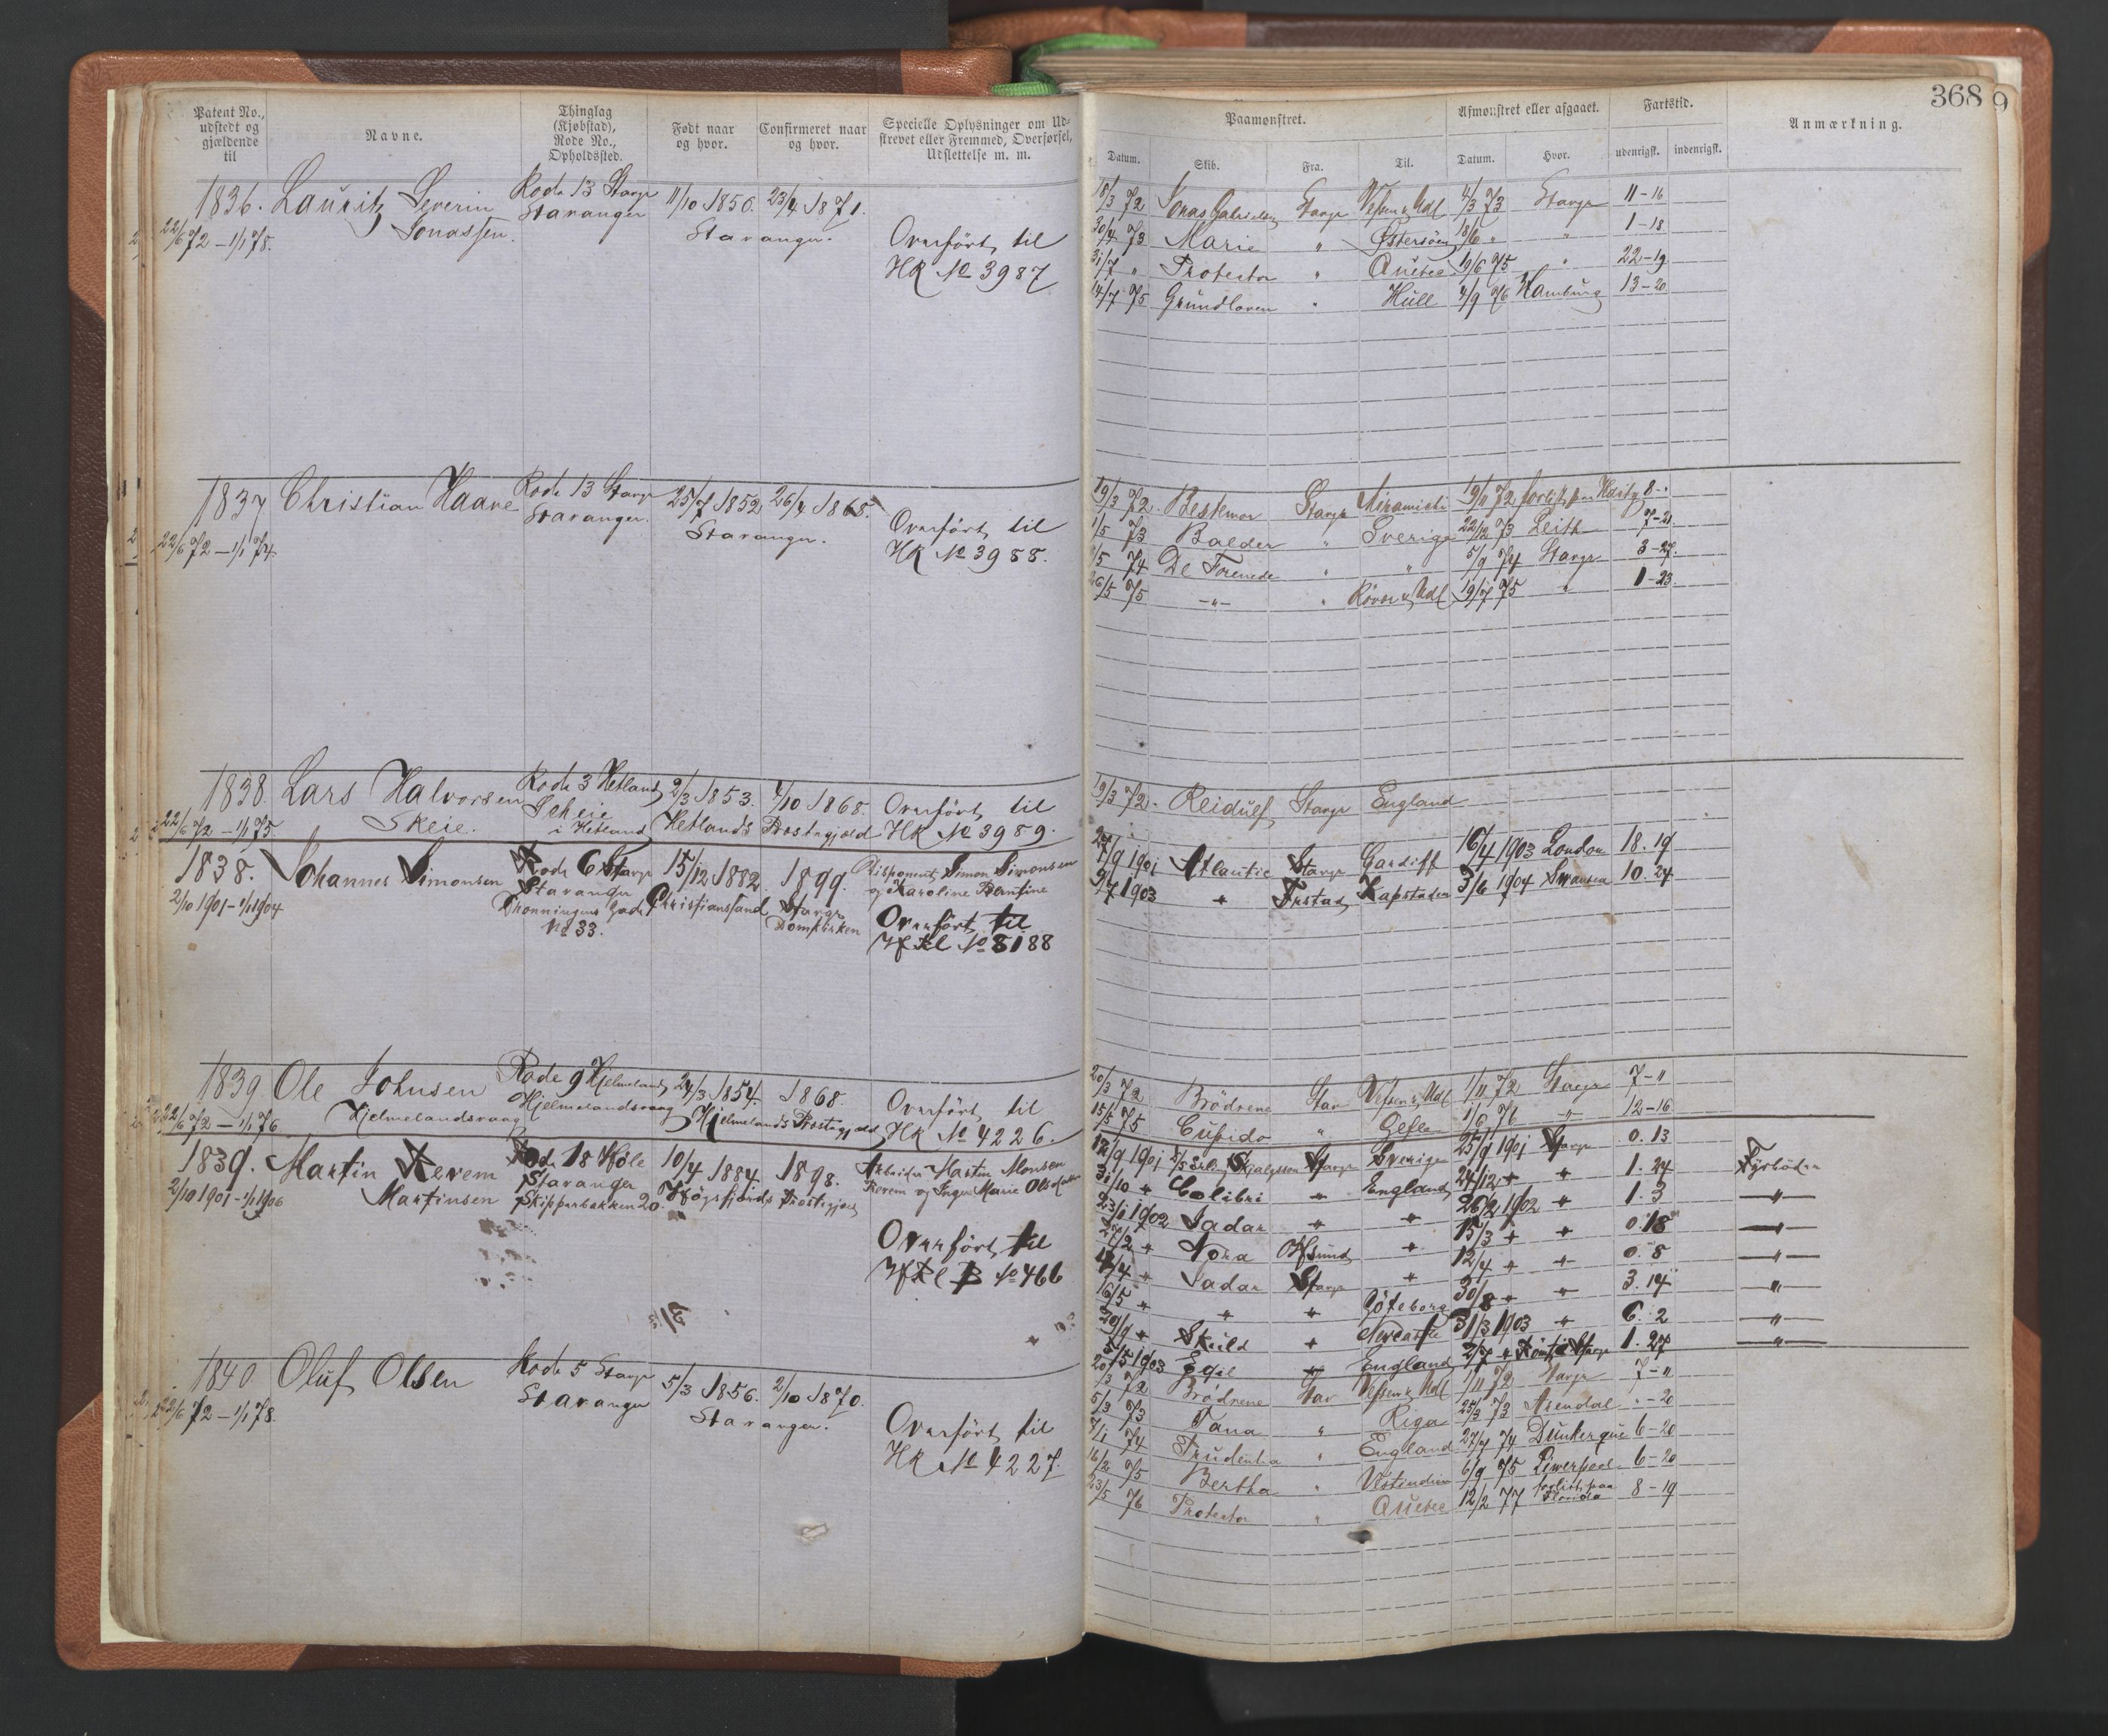 Patent No., udstedt og gjældende til
Navne.
Thinglag (Kjøbstad), Rode No., Opholdssted.
Født naar og hvor.
Confirmeret naar og hvor.
Specielle Oplysninger om Udstrevet eller Fremmed, Overførsel, Udslettelse m. m.
1836. Lauritz Severin Rode 13 Stavgr 11/10 1850. 23/4 1871.
22/6 72 – 1/1 78. Jonassen. Stavanger Stavanger.
Overført til
HR No 3987
1837 Christian Haave Rode 13 Stavgr 25/7 1852 26/4 1868.
22/6 72 – 1/1 74. Stavanger. Stavanger.
Overført til
HR No 3988.
1838. Lars Halvorsen Rode 3 Hetland 2/3 1853. 4/10 1868. Overført til
22/6 72 – 1/1 75. Skeie. Scheie i Hetland Hetlands Prestegjæld HR No 3989.
1838. Johannes Simonsen Rode 6 Stavgr 15/12 1882. 1899. Disponent Simon Simonsen
2/10 1901 - 1/1 1904 Stavanger Christianssand Stavgr og Karoline Bentine
Dronningens Gade Domkirken Overført til
No 33. HRl No 8188
1839 Ole Johnsen Rode 9 Hjelmeland 24/3 1854. 1868. Overført til
22/6 72 – 1/1 76. Hjelmelandsvaag Hjelmelandsvaag Hjelmelands Prestegjæld HR No 4226.
1839. Martin Rerem Rode 18 Høle 10/4 1884. 1898. Arbeider Martin Monsen
2/10 1901 - 1/1 1906 Martinsen Stavanger Høgsfjords Prestegjæld Rerem og Inger Marie Olsdatter
Skipperbakken 20.
Overført til
HRl B No 466
1840. Oluf Olsen Rode 5 Stavgr 5/3 1856. 2/10 1870.
22/6 72 – 1/1 78. Stavanger Stavanger.
Overført til
HR No 4227
368
9
Paamønstret.
Afmønstret eller afgaaet.
Fartstid.
Anmærkning.
Datum. Skib. Fra. Til. Datum. Hvor. udenrigst. indenrigst.
18/3 72 Jonas Gabrielsen Stavgr Vefsen & Udl 4/3 73 Stavgr 11 - 16
30/4 73 Marie " Østersøen 18/6 " " 1 - 18
31/7 " Protector " Quebec 19/6 75 " 22 - 19
14/7 75 Grundloven " Hull 4/9 76 Hamburg 13 - 20
19/3 72. Bestemor Stavgr Miramichi 19/11 72 8 - "
1/5 73 Balder " Sverige 22/12 73 Leith 7 - 21
/5 74 De Forenede " " 5/9 74 Stavgr 3 - 27.
26/5 75 – " – " & Udl 19/7 75 " 1 - 23
19/3 72. Reidulf Stavgr England
27/9 1901 Atlantic Stavgr Cardiff 16/4 1903 London 18. 19
9/7 1903 " Fr.stad Kapstaden 3/6 1904 Swansea 10. 24
20/3 72 Brødrene Stav Vefsen & Udl 1/11 72 Stavgr 7 - 11
15/5 75 Cupido " Gefle 1/6 76 " 12 - 16
12/9 1901 D/S Erling Skjalgssøn Stavgr Sverige 25/9 1901 Stavgr 0. 13
31/10 " Colibri " England 24/12 " " 1. 24 Fyrbøder
23/1 1902 Jadar " " 26/2 1902 " 1. 3 – " –
27/2 " Nora " 15/3 " " 0. 18 – " –
4/4 " Jadar Stavgr " 12/4 " " 0. 8 – " –
16/5 " " " Göteborg 30/8 " " 3. 14 – " –
29/9 " Skuld " Newcastle 31/3 1903 " 6. 2 – " –
5/5 1903 Egil " England 2/7 " Stavgr 1. 27 – " –
20/3 72 Brødrene Stav Vefsen & Udl 1/11 72 Stavgr 7 - 11
5/3 73 Tana " Riga 25/3 73 Arendal " - 20
7/1 74 Prudentia " England 27/7 74 Dunkerque 6 - 20
16/2 75 Bertha " Vestindien 6/9 75 Liverpool 6 - 20
23/5 76 Protector " Quebec 12/2 77 forlist paa Florida 8 - 19